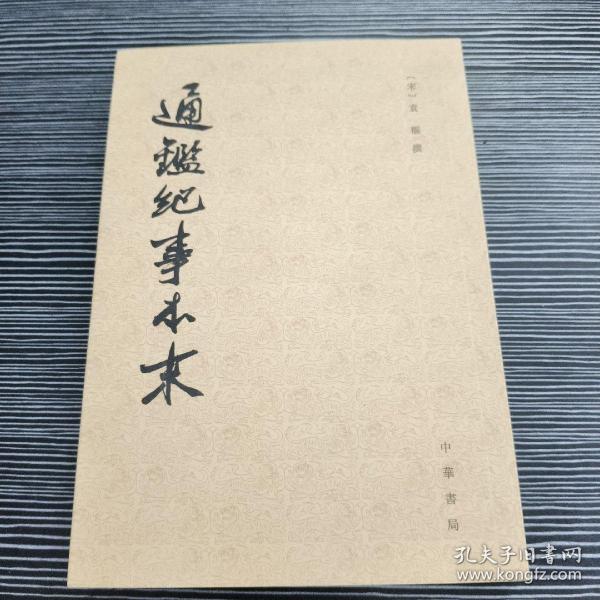 [宋]袁樞撰
通鑑紀事本末
中華書局
孔夫子旧书网
www.kongfz.com